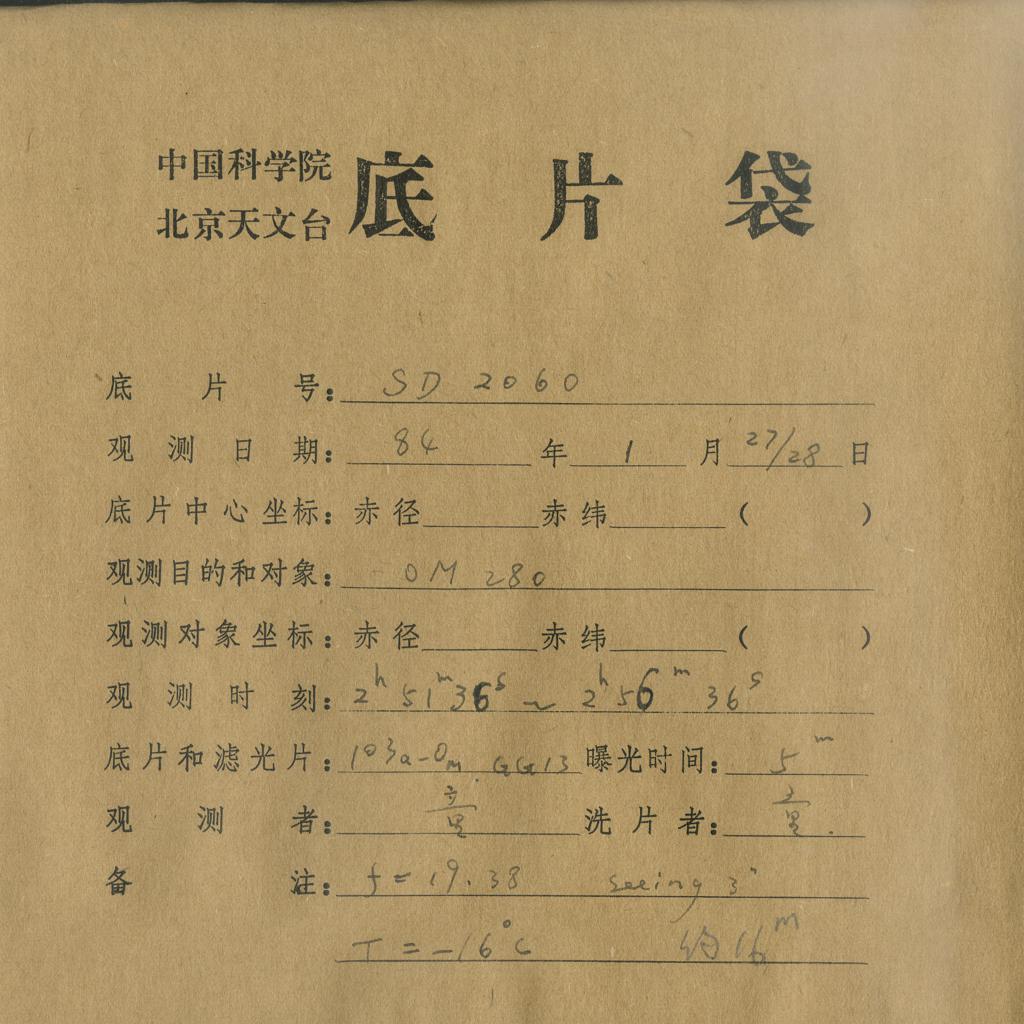 中国科学院
北京天文台
底片袋
底片号：SD 2060
观测日期：84年1月27/28日
底片中心坐标：赤径 赤纬 （ ）
观测目的和对象：OM 280
观测对象坐标：赤径 赤纬 （ ）
观测时刻：2h 51m 36s ~ 2h 56m 36s
底片和滤光片：103a-OM. GG13 曝光时间：5m
观测者：童 洗片者：童.
备注：f = 19.38 seeing 3"
T = -16°C 约16m